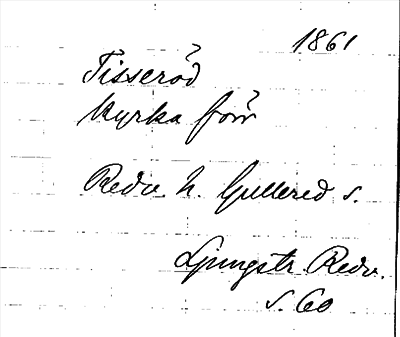 1861
Tisseröd
Kyrka förr
Redv. N. Gullered s.
Ljungstr. Redv.
s. 60